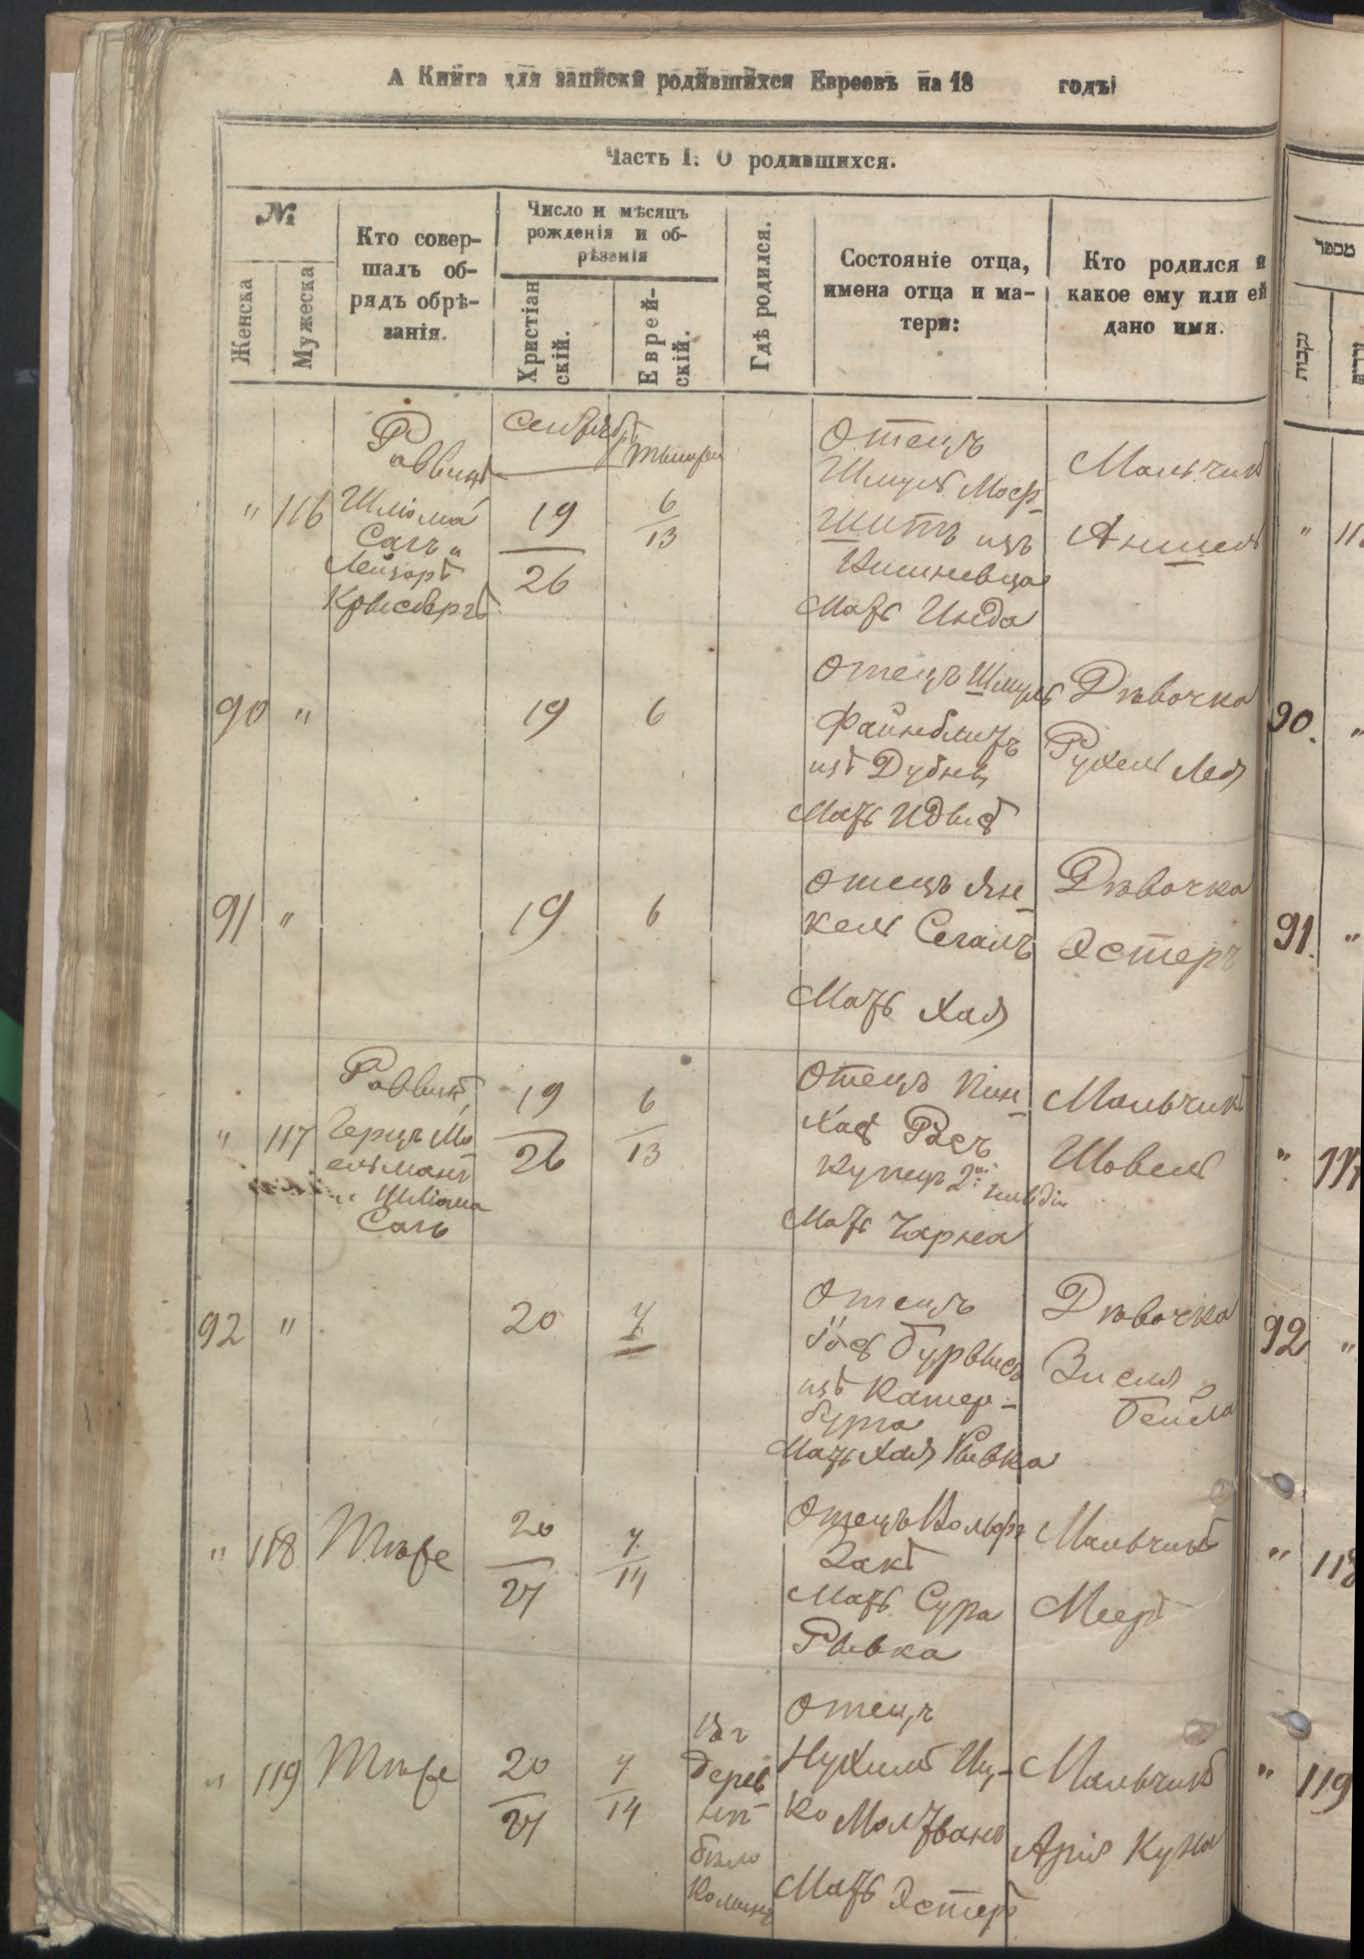 А Книга для записки родившихся Евреевъ на 18 годъ
Часть I. О родившихся.
№
Женска
Мужеска
Кто совер-
шалъ об-
рядъ обрѣ-
занія.
Число и мѣсяцъ
рожденія и об-
рѣзанія
Христіан
скій.
Еврей-
скій.
Гдѣ родился.
Состояніе отца,
имена отца и ма-
тери:
Кто родился и
какое ему или ей
дано имя.
מספר
נקבות
" 116
Раввинъ
Шліома
Сагъ и
Лейзоръ
19
26
6
13
Отецъ
Шмуль Мор-
изъ
Вишневца
Мать Инда
Мальчикъ
Аншель
"
90 "
19
6
Отецъ Шмуль
Файнблитъ
изъ Дубна
Мать
Дѣвочка
Рухель Лея
90. "
91 "
19
6
Отецъ Ян-
кель Сегалъ
Мать Хая
Дѣвочка
Эстеръ
91. "
" 117
Раввинъ
Герцъ Мо
ельманъ
и Шліома
Сагъ
19
26
6
13
Отецъ Пин-
хасъ
Купецъ 2й гильдіи
Мать Чарна
Мальчикъ
Шовель
" 117
92 "
20
7
Отецъ
изъ Катер-
бурга
Мать Хая Ривка
Дѣвочка
Зисля
Бейла
92 "
" 118
Тѣже
20
27
7
14
Отецъ Вольфъ
Закъ
Мать Сура
Ривка
Мальчикъ
Мееръ
" 118
" 119
Тѣже
20
27
7
14
Въ
дерев
нѣ
бѣло
Отецъ
Нухимъ Иц-
ко
Мать Эстеръ
Мальчикъ
Арія Куна
" 119